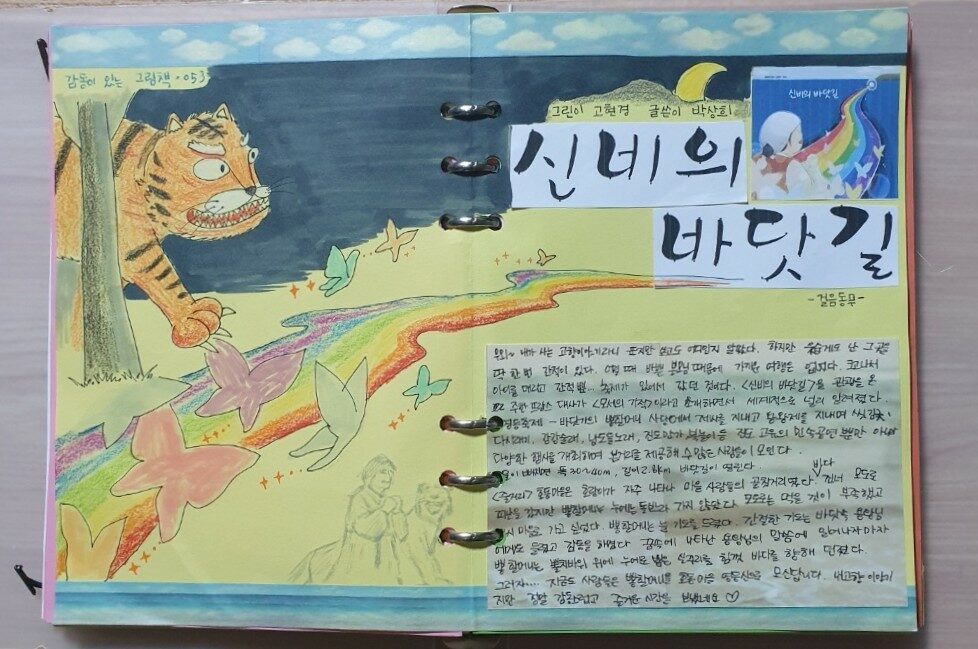 감동이 있는 그림책·053
그린이 고현경 글쓴이 박상희
신비의
바닷길
신비의 바닷길
-걸음동무-
우와~ 내가 사는 고향이야기라니 표지만 보고도 어디인지 알았다. 하지만 난 그곳을
딱 한 번 간적이 있다. 어릴 때 바쁜 부모님 때문에 가족 여행은 없었다. 크고나서
아이를 데리고 간적뿐... 축제가 있어서 갔던 것이다. <신비의 바닷길>을 관광을 온
주한 프랑스 대사가 <모세의 기적>이라고 소개하면서 세계적으로 널리 알려졌다.
영등축제 - 바닷가의 뽕할머니 사당에서 제사를 지내고 용왕제를 지내며 씻김굿,
다시래기, 강강술래, 남도들노래, 진도만가, 북놀이 등 진도 고유의 민속공연 뿐만 아니라
다양한 행사를 개최하며 볼거리를 제공해 수많은 사람들이 모인다.
폭 30~40m, 길이 2.8km의 바닷길이 열린다.
<줄거리> 호동마을은 호랑이가 자주 나타나 마을 사람들의 골칫거리였다. 바다 건너 모도로
피난을 갔지만 뽕할머니는 가지 않았다. 모도로는 먹을 것이 부족했고
다시 마을로 가고 싶었다. 뽕할머니는 늘 기도를 드렸다. 간절한 기도는 바닷속 용왕님
에게도 들렸고 감동을 하였다. 꿈속에 나타난 용왕님의 말씀에 일어나자마자
뽕할머니는 바위 위에 바다를 향해 던졌다.
그러자.... 지금도 사람들은 뽕할머니를 모신답니다. 내고향 이야기
지만 정말 감동스럽고 즐거운 시간을 보냈네요 ♡